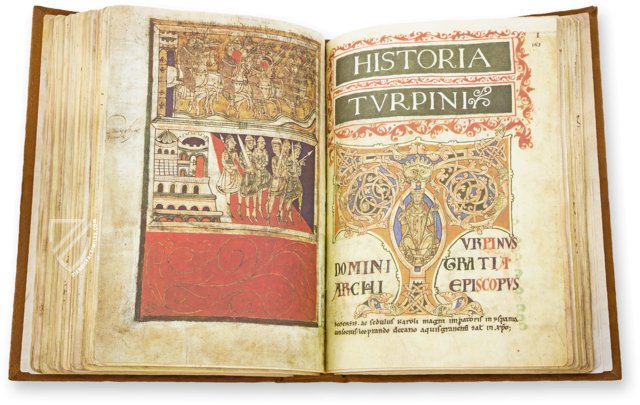 HISTORIA
TVRPINI
I
162
VRPINVS
DOMINI GRATIA
ARCHI EPISCOPVS
ac sedulus karoli magni imperatoris in yspania
leoprando decano aquisgranensi salt in xpo;